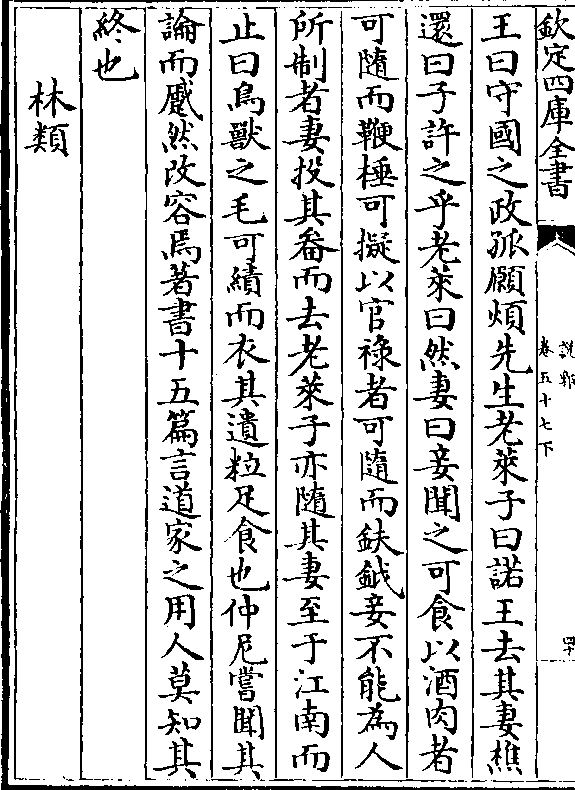 欽定四庫全書
説郛
卷五十七下
四十
王曰守國之政孤願煩先生老萊子曰諾王去其妻樵
還曰子許之乎老萊曰然妻曰妾聞之可食以酒肉者
可隨而鞭棰可擬以官祿者可隨而鈇鉞妾不能為人
所制者妻投其畚而去老萊子亦隨其妻至于江南而
止曰鳥獸之毛可績而衣其遺粒足食也仲尼嘗聞其
論而蹙然改容焉著書十五篇言道家之用人莫知其
終也
林類